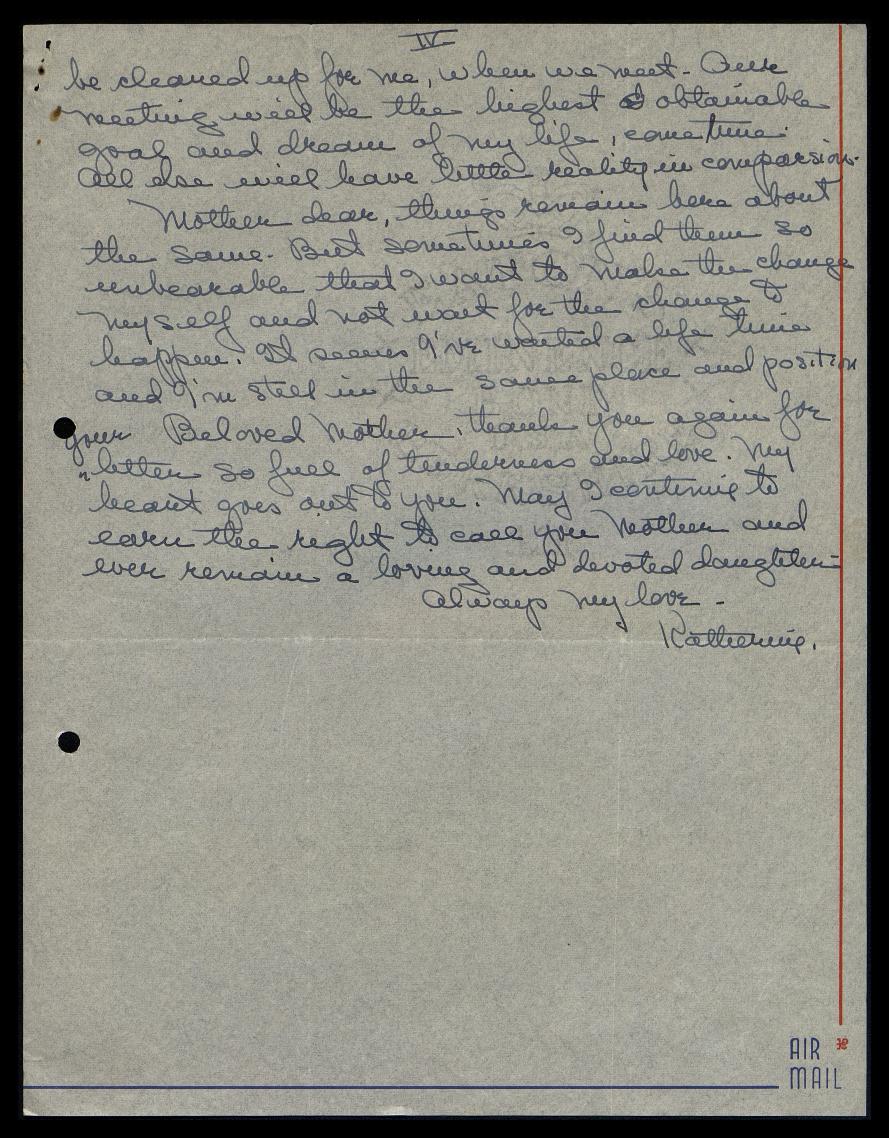 IV
be cleared up for me, when we meet - Our
meeting will be the highest obtainable
goal and dream of my life,
All else will have little reality in comparsion.
Mother dear, things remain here about
the same. But sometimes I find them so
unbearable that I want to make the change
myself and not wait for the change to
happen. It seems I've waited a life time
and I'm still in the same place and position
Beloved Mother, thank you again for
your letter so full of tenderness and love. My
heart goes out to you. May I continue to
earn the right to call you Mother and
ever remain a loving and devoted daughter -
Always my love -
Katherine.
AIR
MAIL